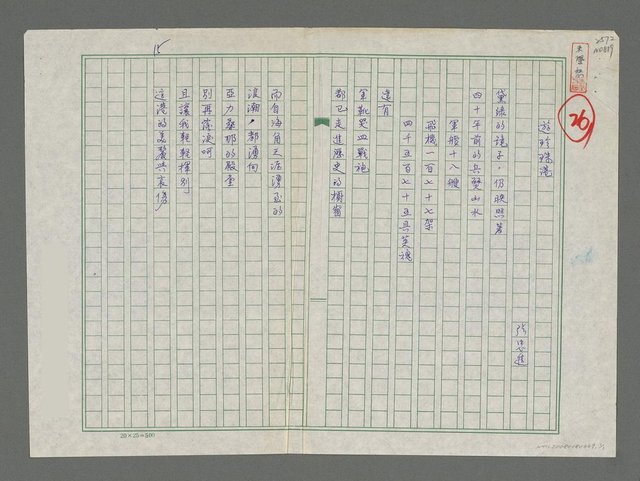 遊珍珠港
張忠進
黛綠的鏡子，仍映照著
四十年前的兵燹山水
軍艘十八艘
飛機一百七十七架
四千五百七十五具英魂
還有
金靴與血戰袍
都已走進歷史的櫥窗
而自海角天涯湧至的
浪潮，都湧向
亞力桑那的殿堂
別再落淚呵
且讓我輕輕揮別
這港的美麗與哀傷
26
15
20×25=500